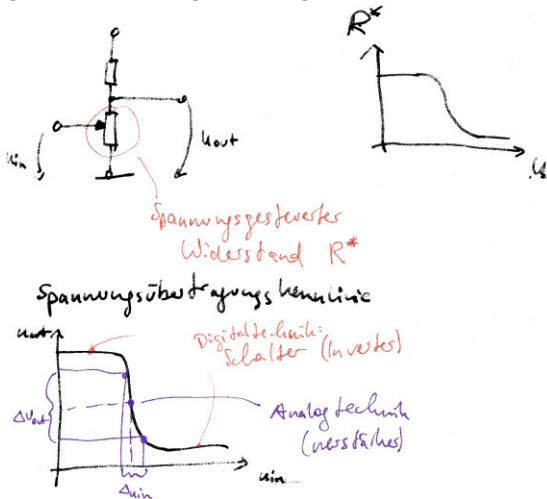 R*
U_in
U_out
Spannungsgesteuerter
Widerstand R*
Spannungsübertragungskennlinie
U_out
Digitaltechnik:
Schalter (Inverter)
ΔU_out
Analogtechnik
(Verstärker)
ΔU_in
U_in